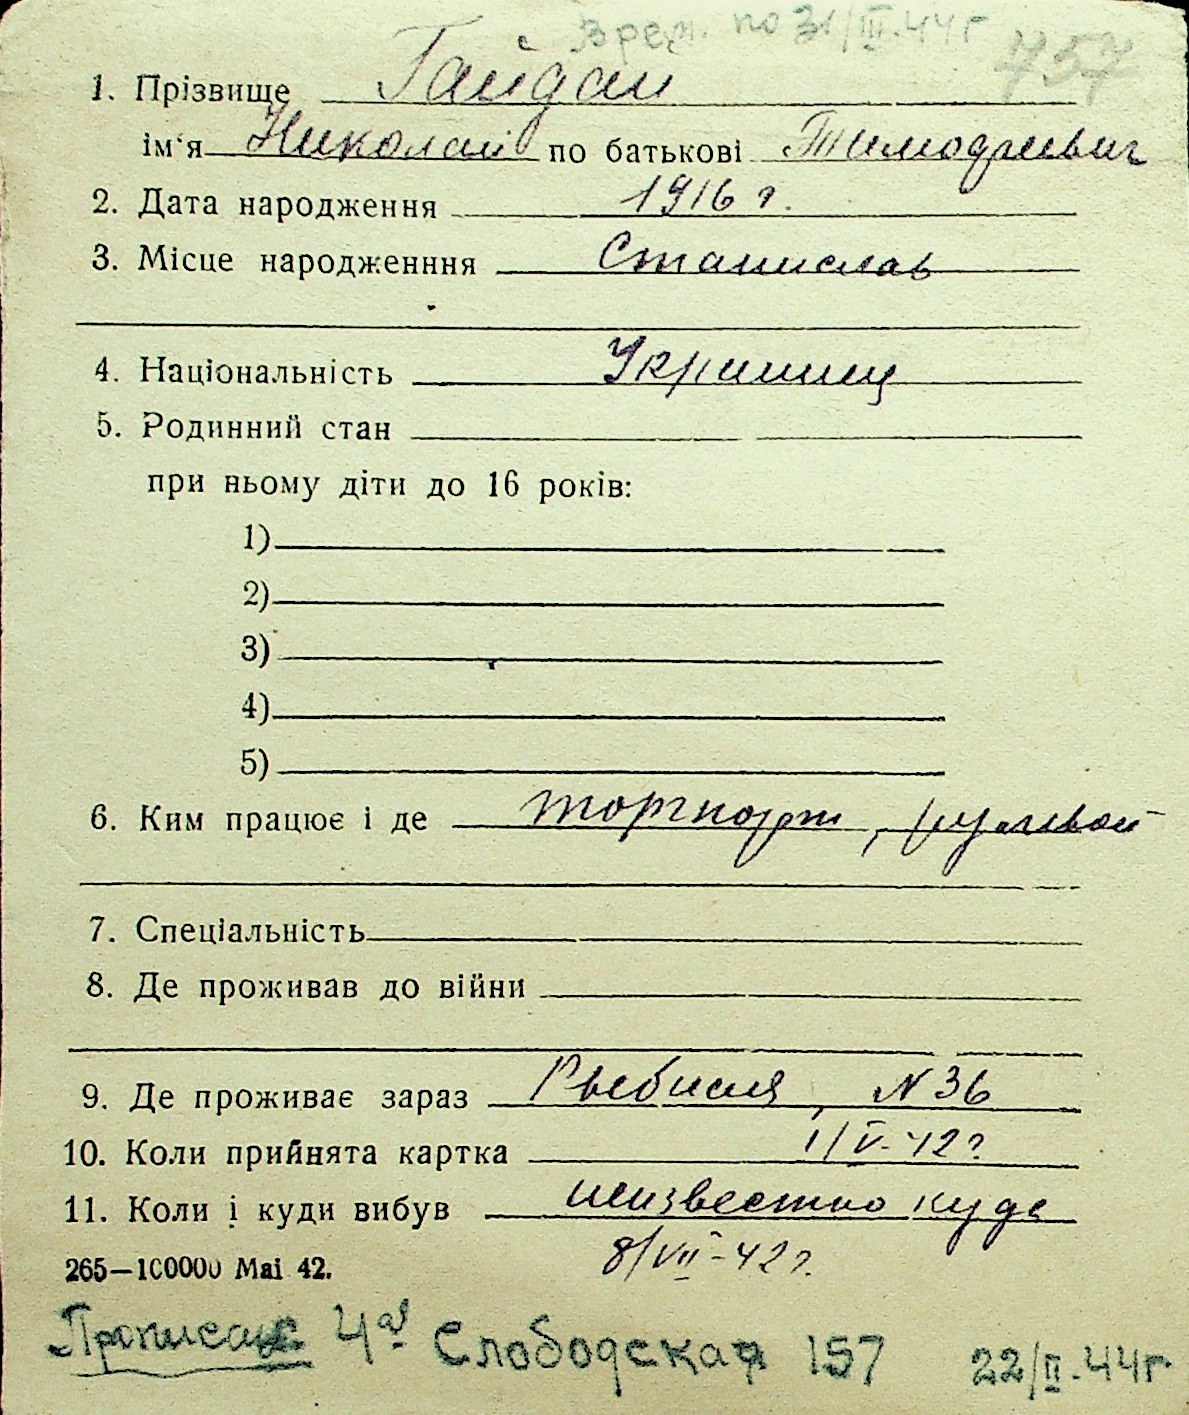 Врем. по 31/III.44г
757
1. Прізвище Гайдай
ім‘я Николай по батькові Тимофеевич
2. Дата народження 1916 г.
3. Місце народженння Станислав
4. Національність Украинец
5. Родинний стан
при ньому діти до 16 років:
1)
2)
3)
4)
5)
6. Ким працює і де торгпорт, рулевой
7. Спеціальність
8. Де проживав до війни
9. Де проживає зараз Рыбная, N 36
10. Коли прийнята картка 1/V-42г
11. Коли і куди вибув неизвестно куда
8/VII-42г.
265—100000 Mai 42.
Прописан 4ая Слободская 157 22/II.44г.